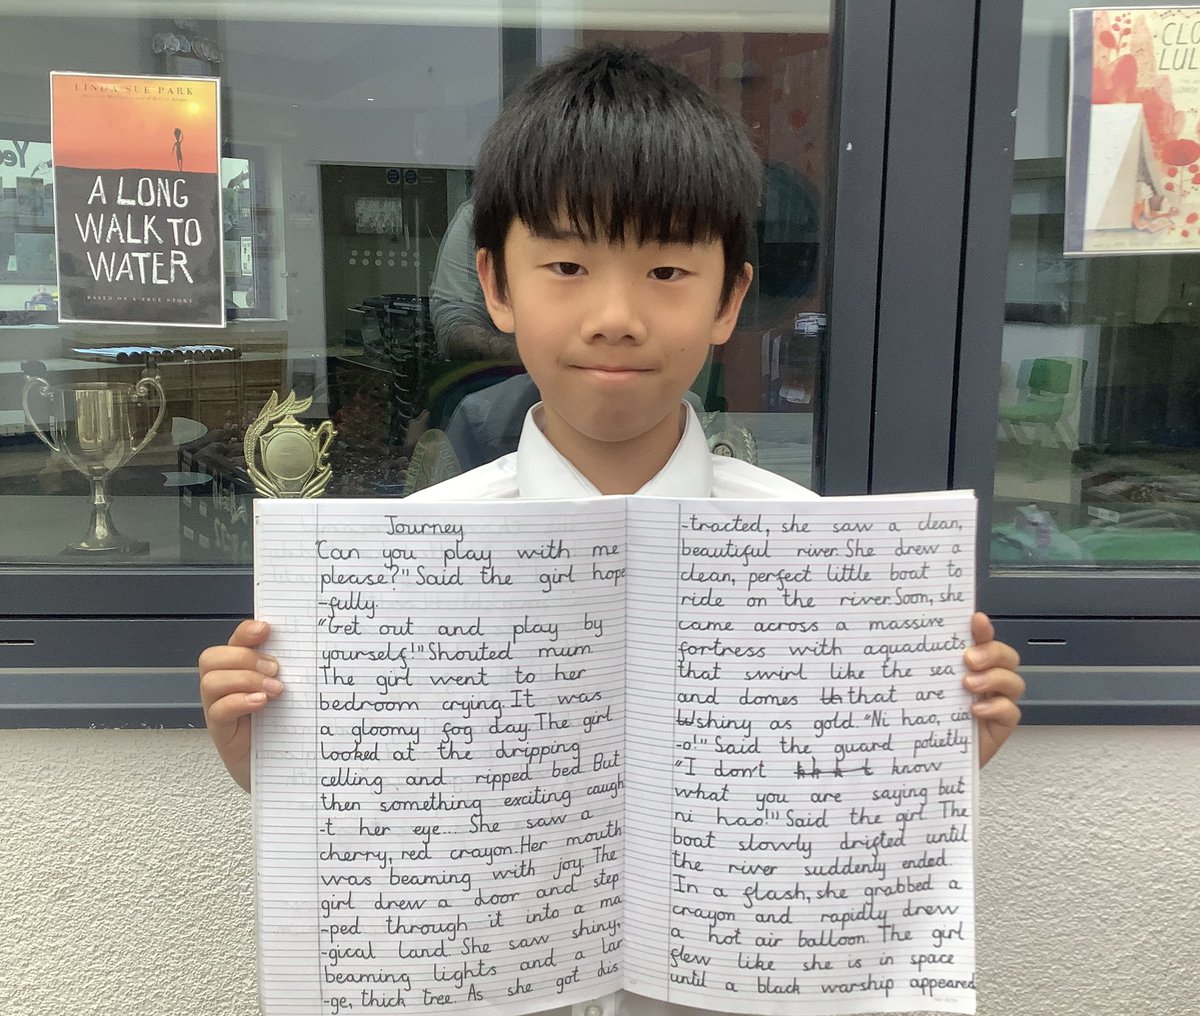 LINDA SUE PARK
A LONG
WALK TO
WATER
BASED ON A TRUE STORY
Journey
"Can you play with me
please?" Said the girl hope
-fully.
"Get out and play by
yourself!" Shouted mum
The girl went to her
bedroom crying. It was
a gloomy fog day. The girl
looked at the dripping
celling and ripped bed. But
then something exciting caugh
-t her eye... She saw a
cherry, red crayon. Her mouth
was beaming with joy. The
girl drew a door and step
-ped through it into a ma
-gical land. She saw shiny,
beaming lights and a lar
-ge, thick tree. As she got dis
-tracted, she saw a clean,
beautiful river. She drew a
clean, perfect little boat to
ride on the river. Soon, she
came across a massive
fortress with aquaducts
that swirl like the sea
and domes that are
shiny as gold. "Ni hao, cia
-o!" Said the guard polietly.
"I don't know
what you are saying but
ni hao!" Said the girl. The
boat slowly drifted until
the river suddenly ended.
In a flash, she grabbed a
crayon and rapidly drew
a hot air balloon. The girl
flew like she is in space
until a black warship appeared